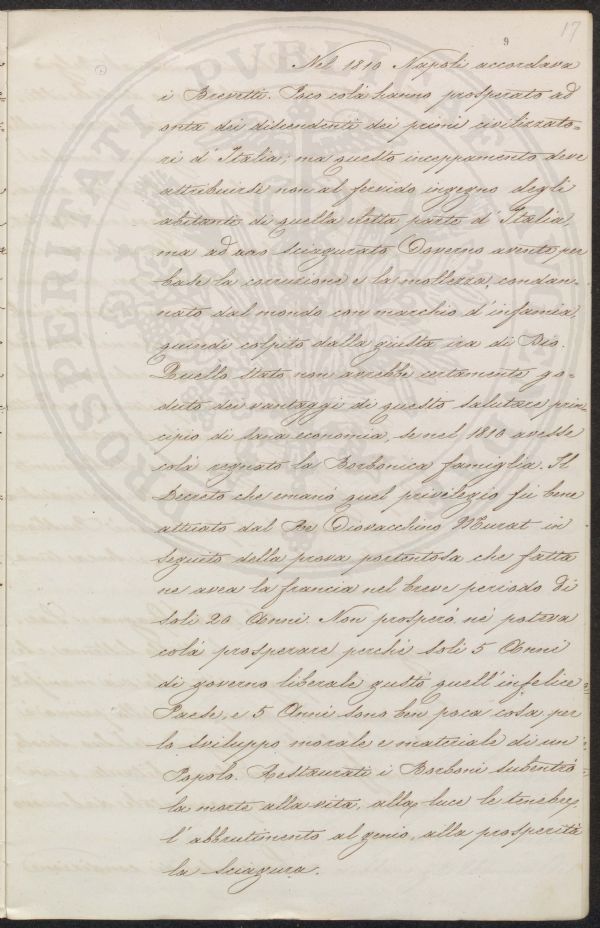 17
9
Nel 1810 Napoli accordava
i Brevetti. Poco colà hanno prosperato ad
onta dei discendenti dei primi civilizzato=
ri d'Italia; ma questo inceppamento deve
attribuirsi non al fervido ingegno degli
abitanti di quella eletta parte d'Italia,
ma ad uno sciagurato Governo avente per
base la corruzione e la mollezza, condan=
nato dal mondo con marchio d'infamia
quindi colpito dalla giusta ira di Dio.
Quello Stato non avrebbe certamente go=
duto dei vantaggi di questo salutare prin=
cipio di sana economia, se nel 1810 avesse
colà regnato la Borbonica famiglia. Il
Decreto che emanò quel privilegio fù bene
attuato dal Re Giovacchino Murat in
seguito della prova portentosa che fatta
ne avea la francia nel breve periodo di
soli 20 Anni. Non prosperò nè poteva
colà prosperare perchè soli 5 Anni
di governo liberale gustò quell'infelice
Paese, e 5 Anni sono ben poca cosa per
lo sviluppo morale e materiale di un
Popolo. Restaurati i Borboni subentrò
la morte alla vita, alla luce le tenebre,
l'abbrutimento al genio, alla prosperità
la sciagura.
PROSPERITATI PVBLICAE